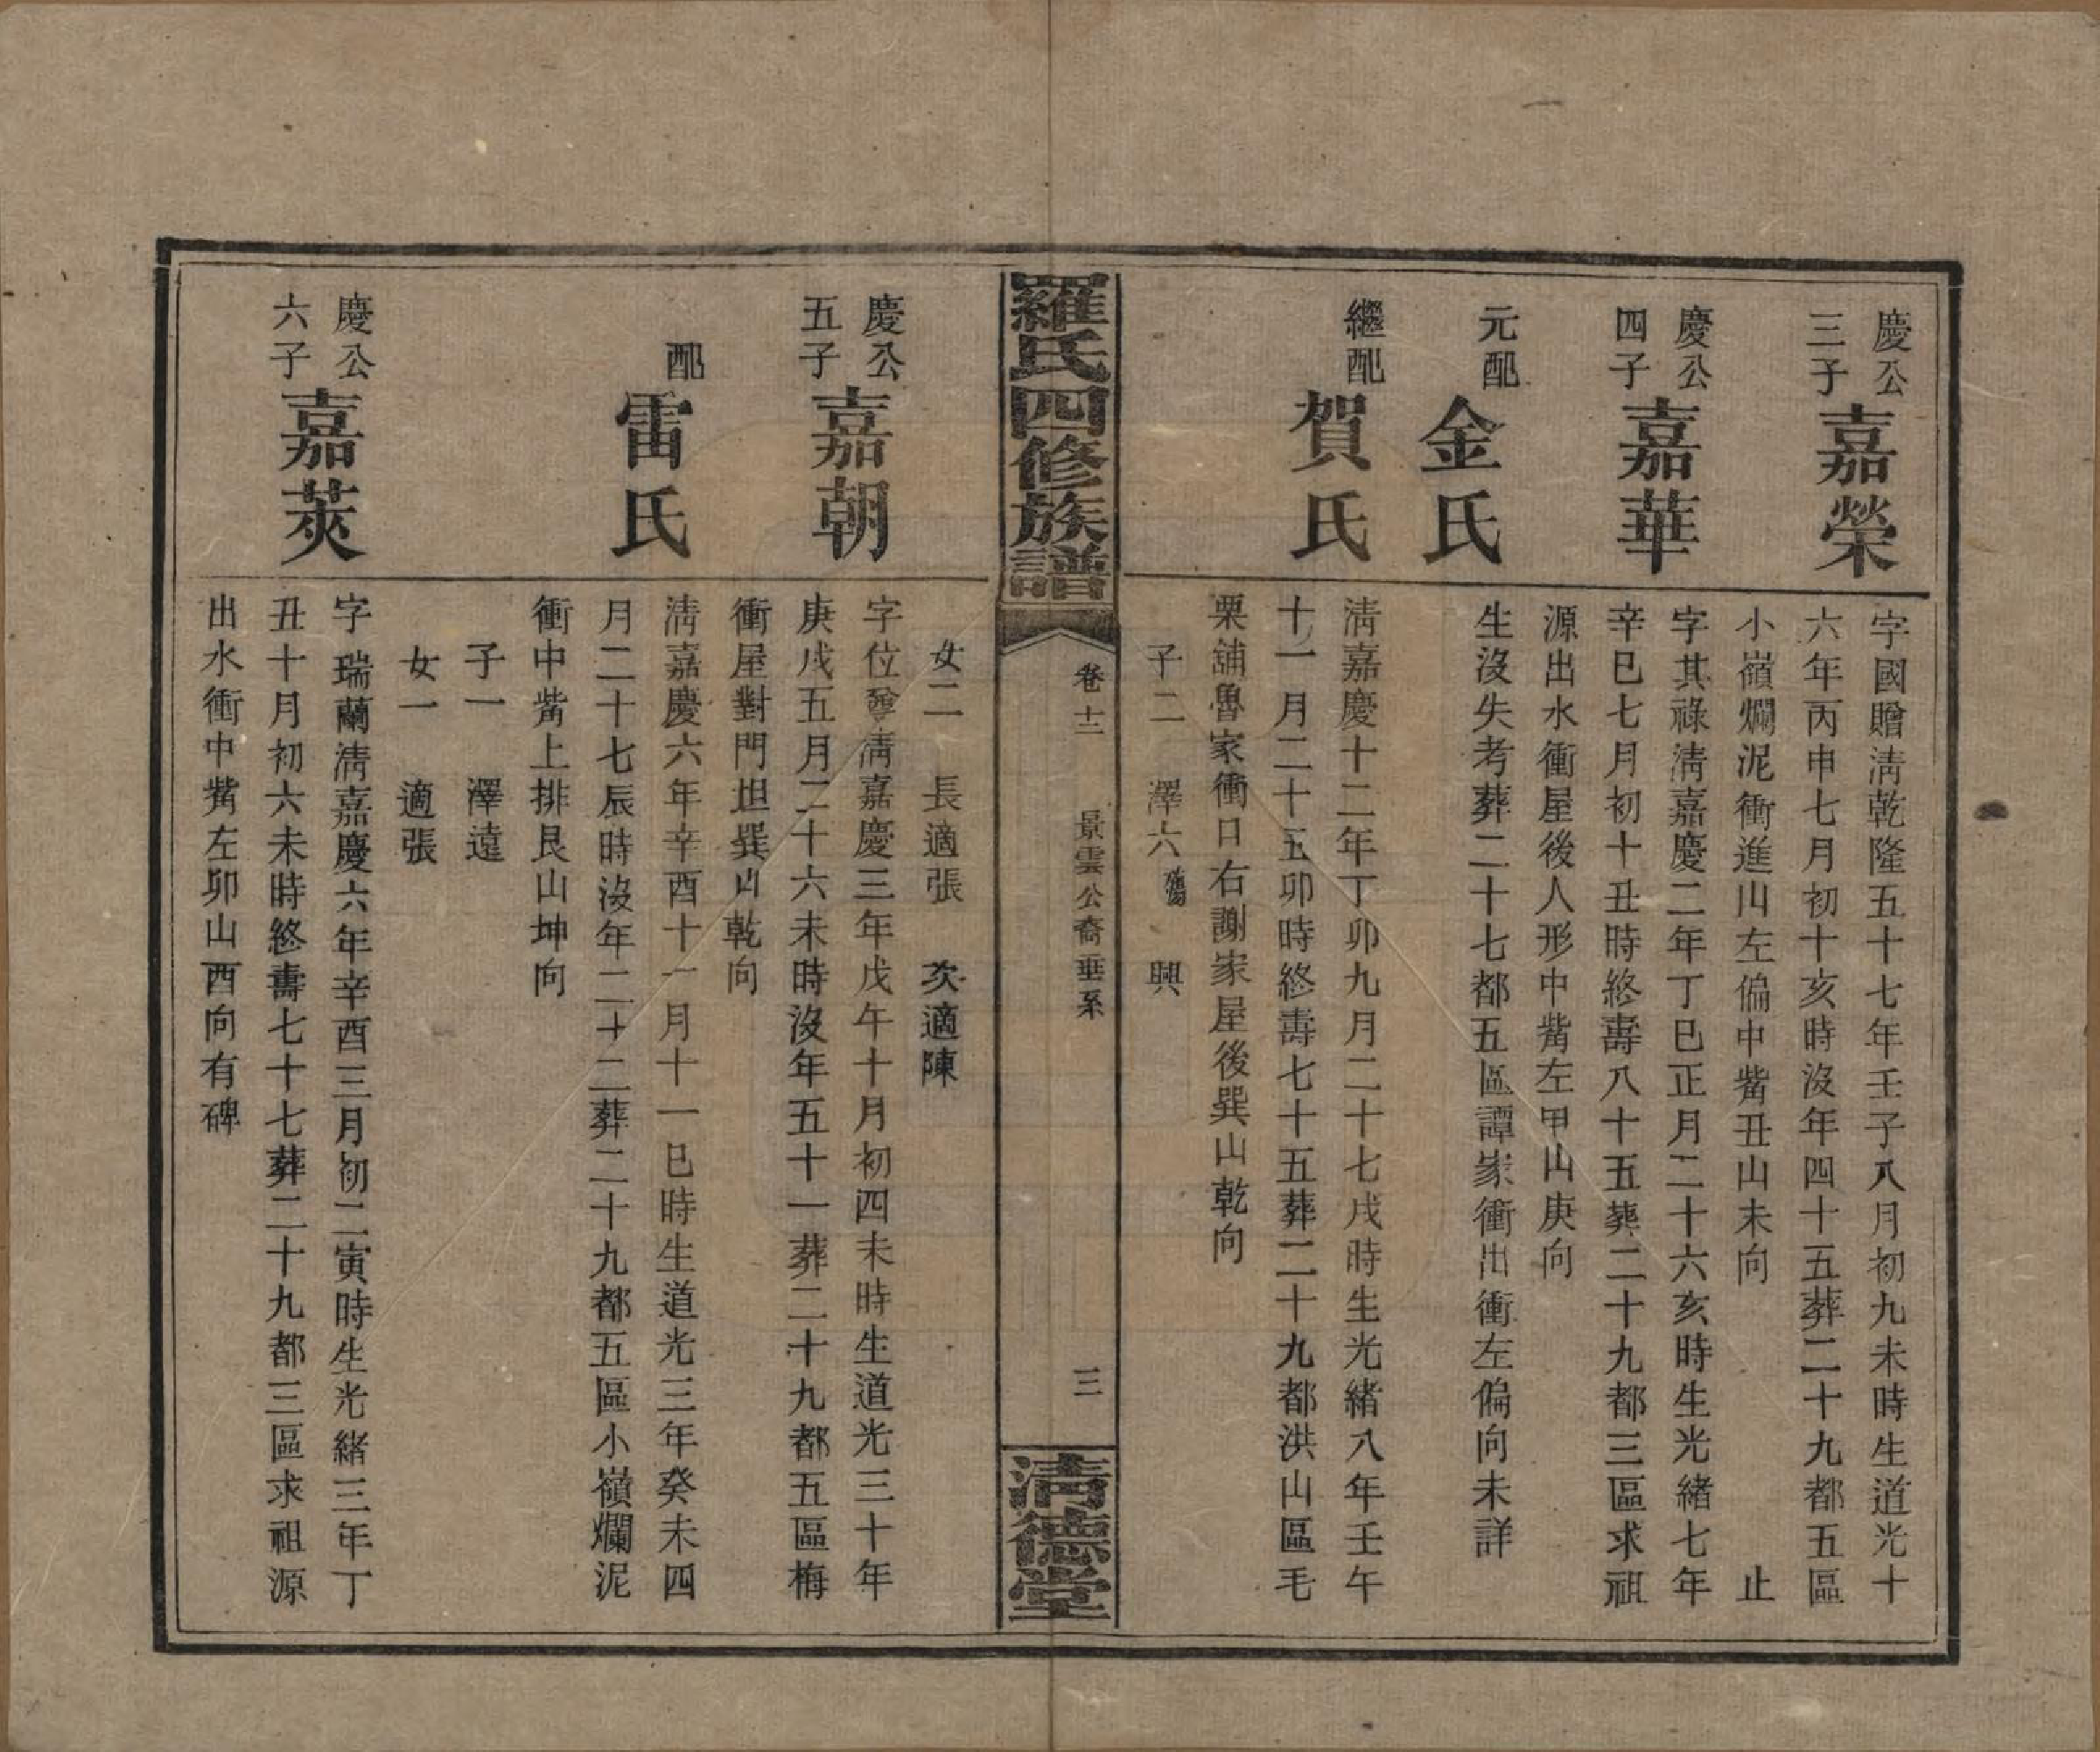 慶公三子
嘉榮
字國贈淸乾隆五十七年壬子八月初九未時生道光十
六年丙申七月初十亥時沒年四十五葬二十九都五區
小嶺爛泥衝進山左偏中嘴丑山未向 止
慶公四子
嘉華
字其祿淸嘉慶二年丁巳正月二十六亥時生光緒七年
辛巳七月初十丑時終壽八十五葬二十九都三區求祖
源出水衝屋後人形中嘴左甲山庚向
元配
金氏
生沒失考葬二十七都五區譚家衝出衝左偏向未詳
繼配
賀氏
淸嘉慶十二年丁卯九月二十七戌時生光緒八年壬午
十一月二十五卯時終壽七十五葬二十九都洪山區毛
栗舖魯家衝口右謝家屋後巽山乾向
子二 澤六 興
羅氏四修族譜
卷十二 景雲公裔垂系
三
淸德堂
女二 長適張 次適陳
慶公五子
嘉朝
字位尊淸嘉慶三年戊午十月初四未時生道光三十年
庚戌五月二十六未時沒年五十一葬二十九都五區梅
衝屋對門坦巽山乾向
配
雷氏
淸嘉慶六年辛酉十一月十一巳時生道光三年癸未四
月二十七辰時沒年二十二葬二十九都五區小嶺爛泥
衝中嘴上排艮山坤向
子一 澤遠
女一 適張
慶公六子
嘉莢
字瑞蘭淸嘉慶六年辛酉三月初二寅時生光緒三年丁
丑十月初六未時終壽七十七葬二十九都三區求祖源
出水衝中嘴左卯山酉向有碑